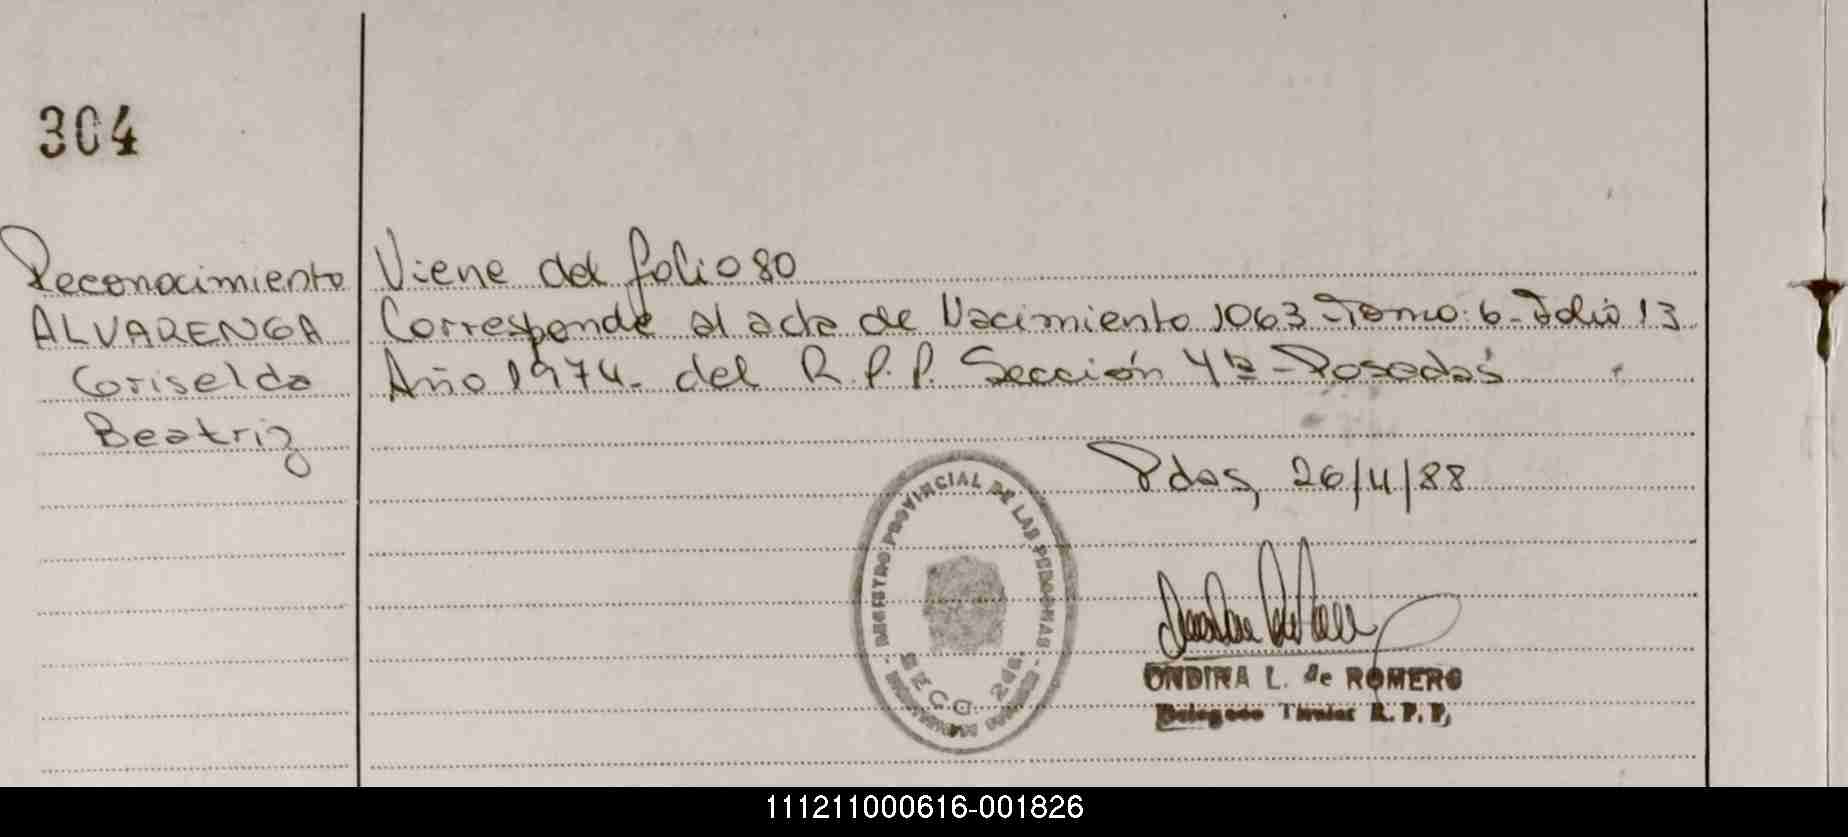 304
Reconocimiento
ALVARENGA
Griselda
Beatriz
Viene del folio 80
Corresponde al acta de Nacimiento 1063 - Tomo: 6 - Folio 13
Año 1974 - del R.P.P. Sección 4ta - Posadas
Pdas, 26/4/88
REGISTRO PROVINCIAL DE LAS PERSONAS
SECC 2da.
ONDINA L. de ROMERO
Delegado Titular R.P.P.
111211000616-001826